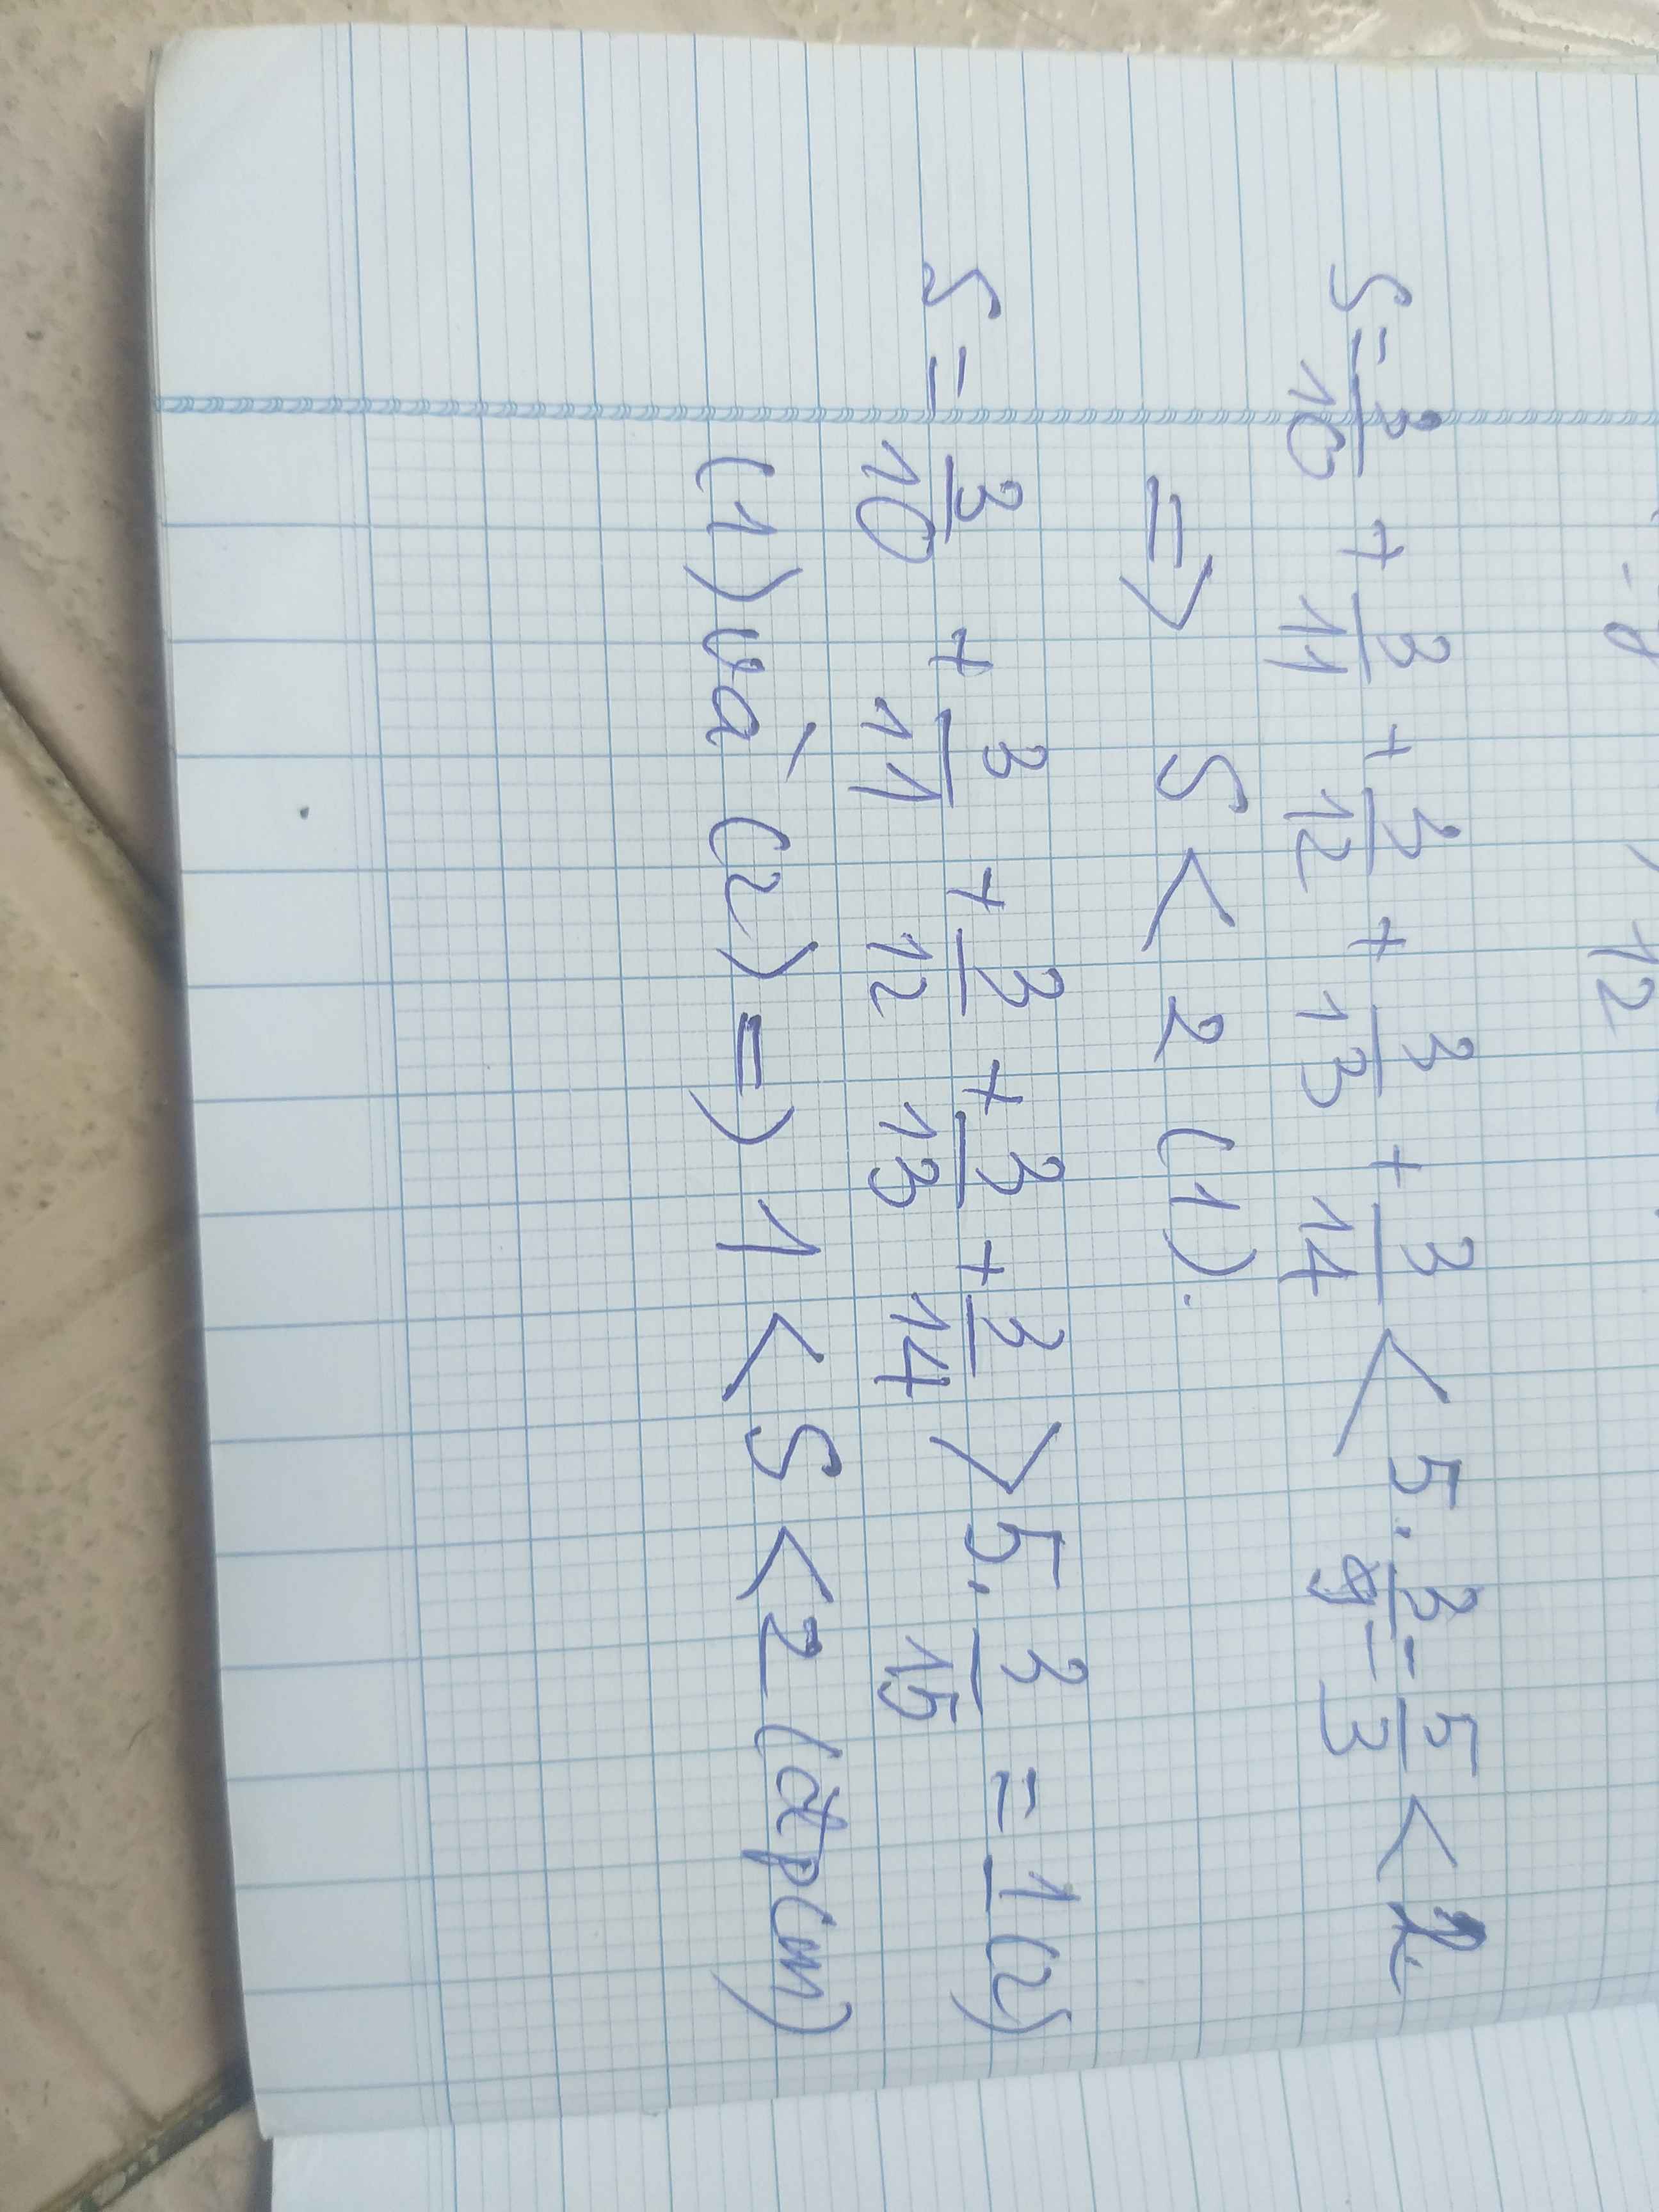 12
S = 3/10 + 3/11 + 3/12 + 3/13 + 3/14 < 5 . 3/9 = 5/3 < 2
=> S < 2 (1).
S = 3/10 + 3/11 + 3/12 + 3/13 + 3/14 > 5 . 3/15 = 1 (2)
(1) và (2) => 1 < S < 2 (đpcm)